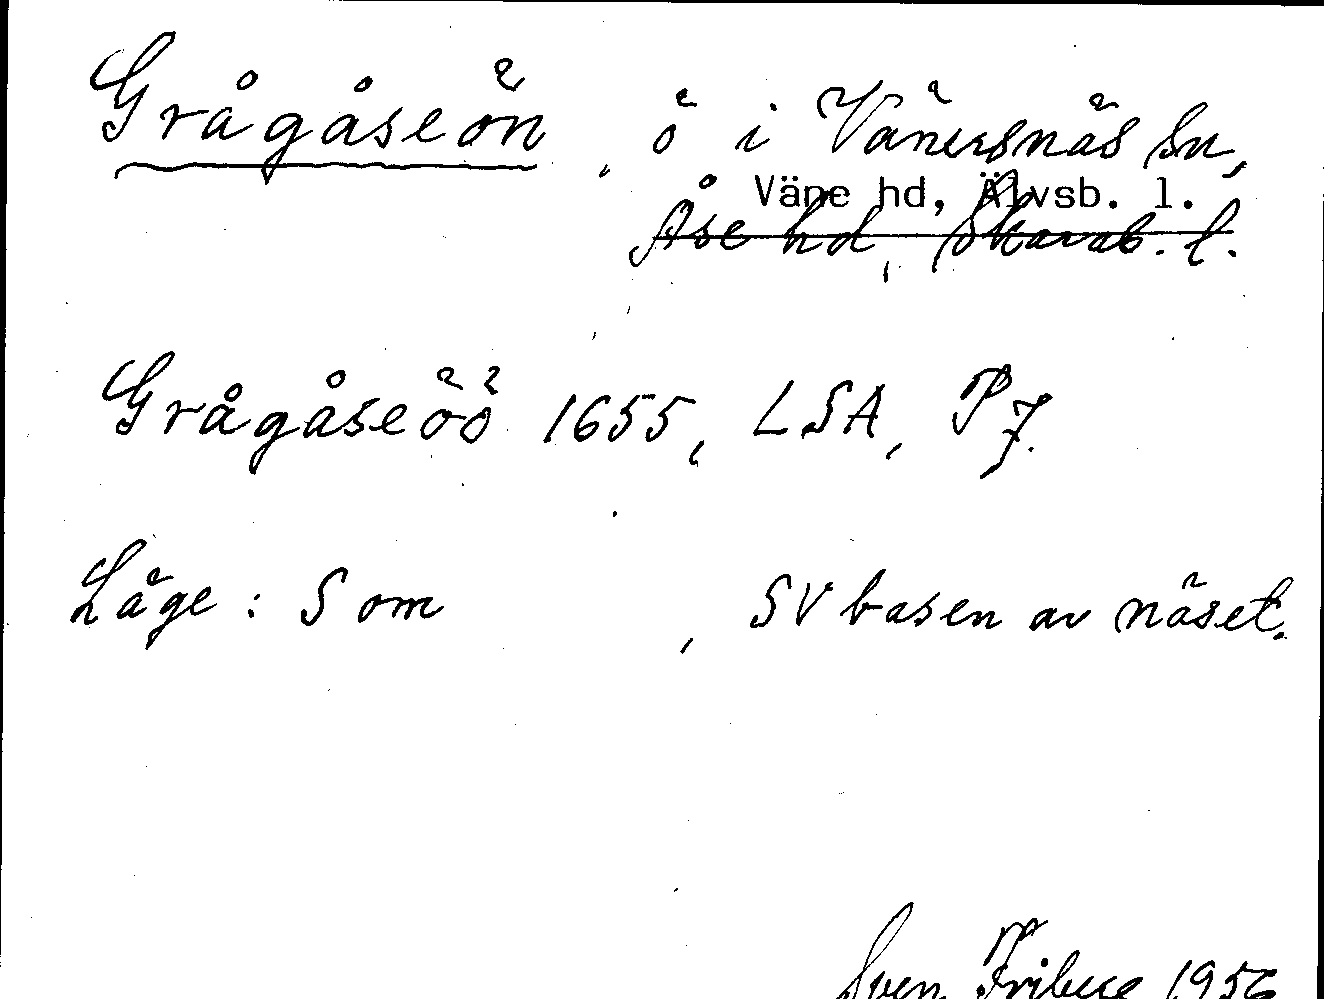 Grågåseön, ö i Vänersnäs sn,
Väne hd, Älvsb. l.
Åse hd, Skarab. l.
Grågåseöö 1655, LSA, P 7.
Läge: S om , SV basen av näset.
Sven Friberg 1956